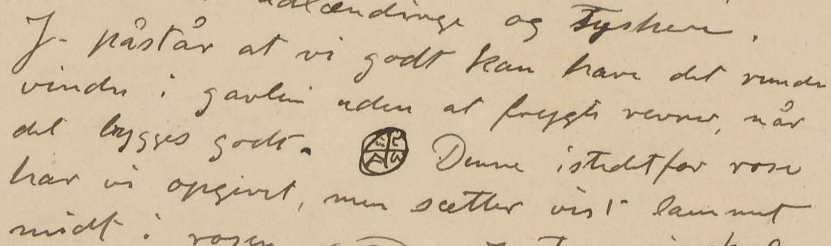 udlændinge og Tyskere.
J. påstår at vi godt kan have det runde
vindu i gavlen uden at frygte revner, når
det bygges godt. Denne istedetfor rose
har vi opgivet, men sætter vist lammet
midt i rosen